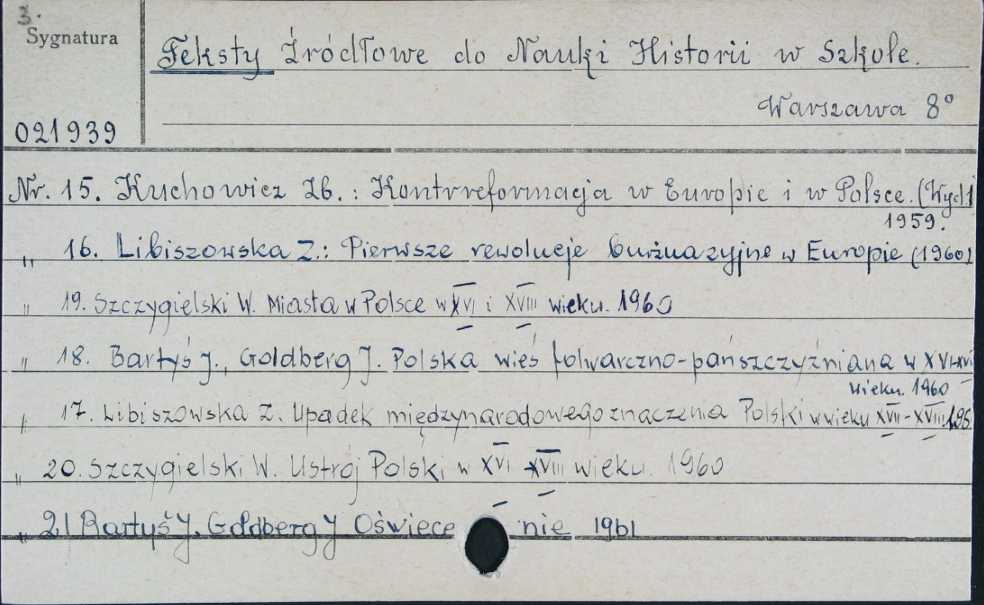 3.
Sygnatura
Teksty Źródłowe do Nauki Historii w Szkole.
Warszawa 8°
021939
Nr. 15. Kuchowicz Zb.: Kontrreformacja w Europie i w Polsce. (Wyd.)
1959.
" 16. Libiszowska Z.: Pierwsze rewolucje burżuazyjne w Europie (1960)
" 19. Szczygielski W. Miasta w Polsce w XVI i XVIII wieku. 1960
" 18. Bartyś J., Goldberg J. Polska wieś folwarczno-pańszczyźniana w XVI-XVII
wieku. 1960
" 17. Libiszowska Z. Upadek międzynarodowego znaczenia Polski w wieku XVII-XVIII.
" 20. Szczygielski W. Ustrój Polski w XVI XVIII wieku. 1960
" 21 Bartyś J. Goldberg J Oświece nie 1961